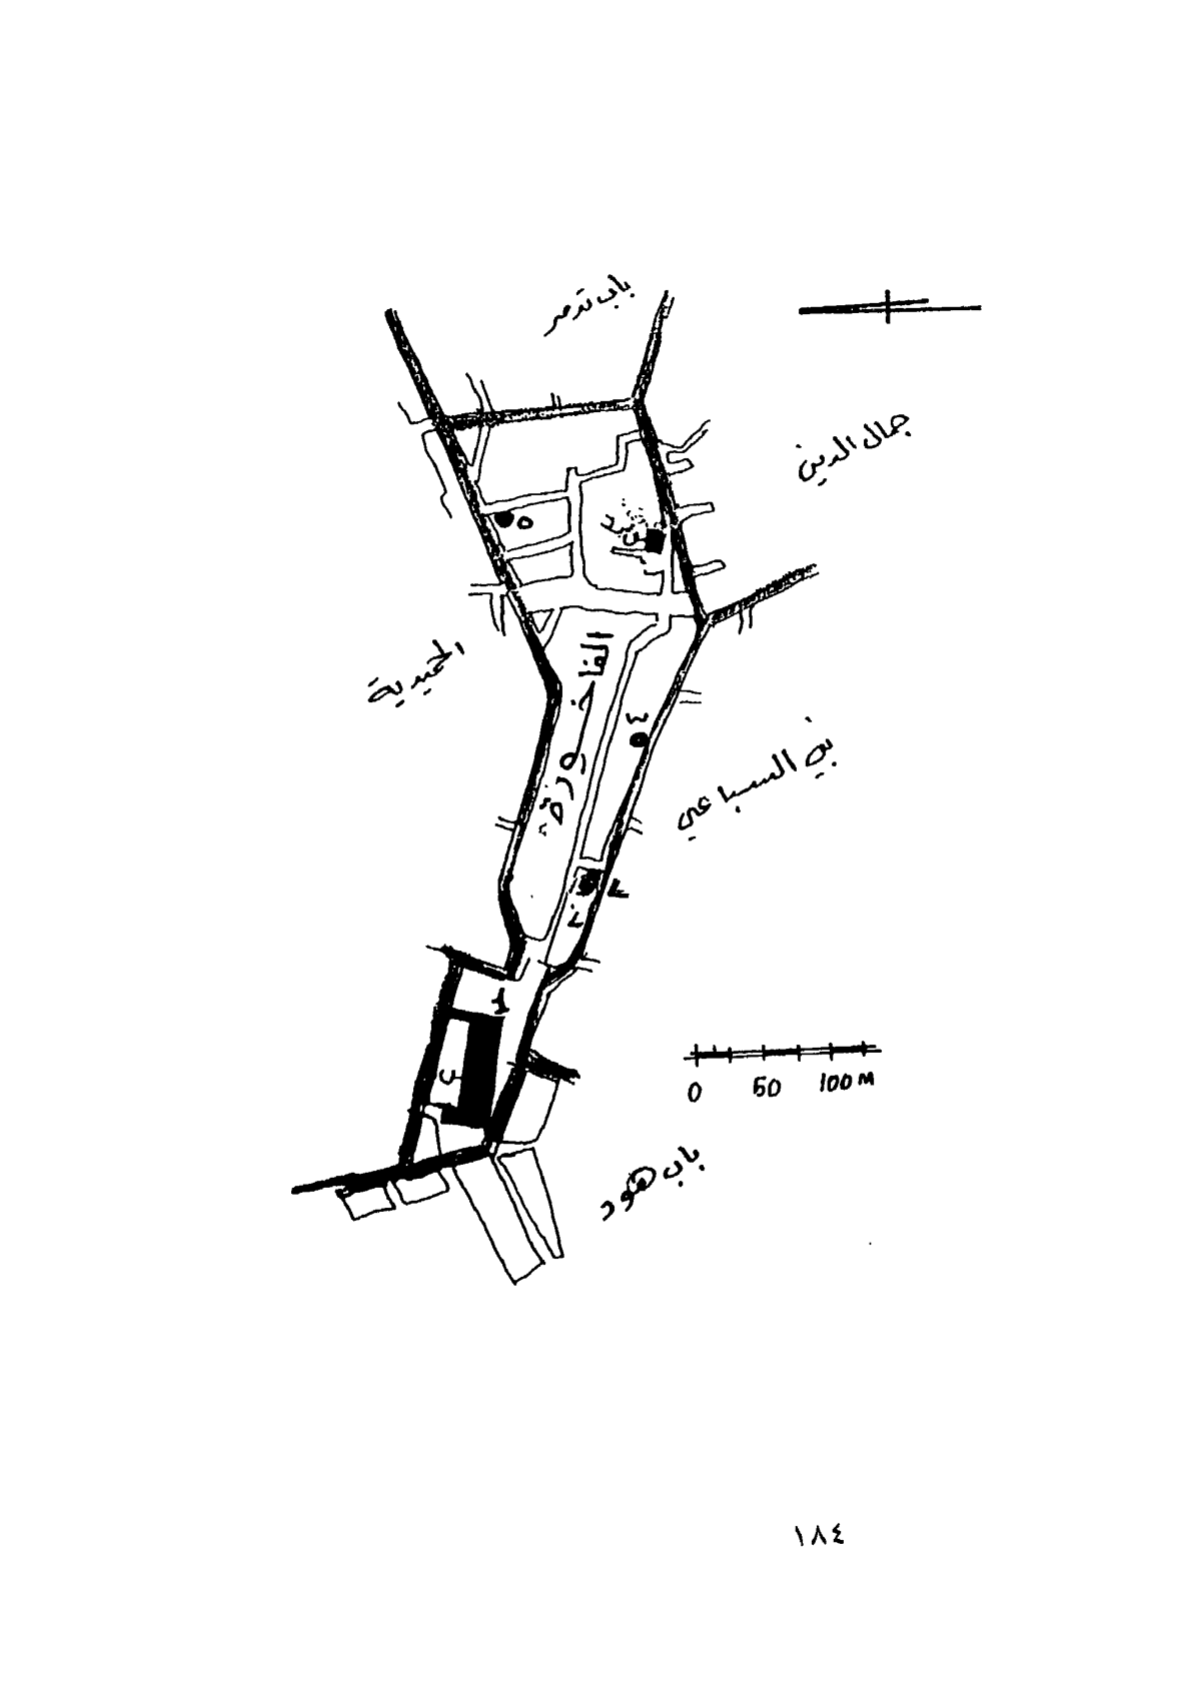 باب تدمر
جمال الدين
٥
الحميدية
الفاخورة
٤
بني السباعي
1
0 50 100 M
باب هود
١٨٤